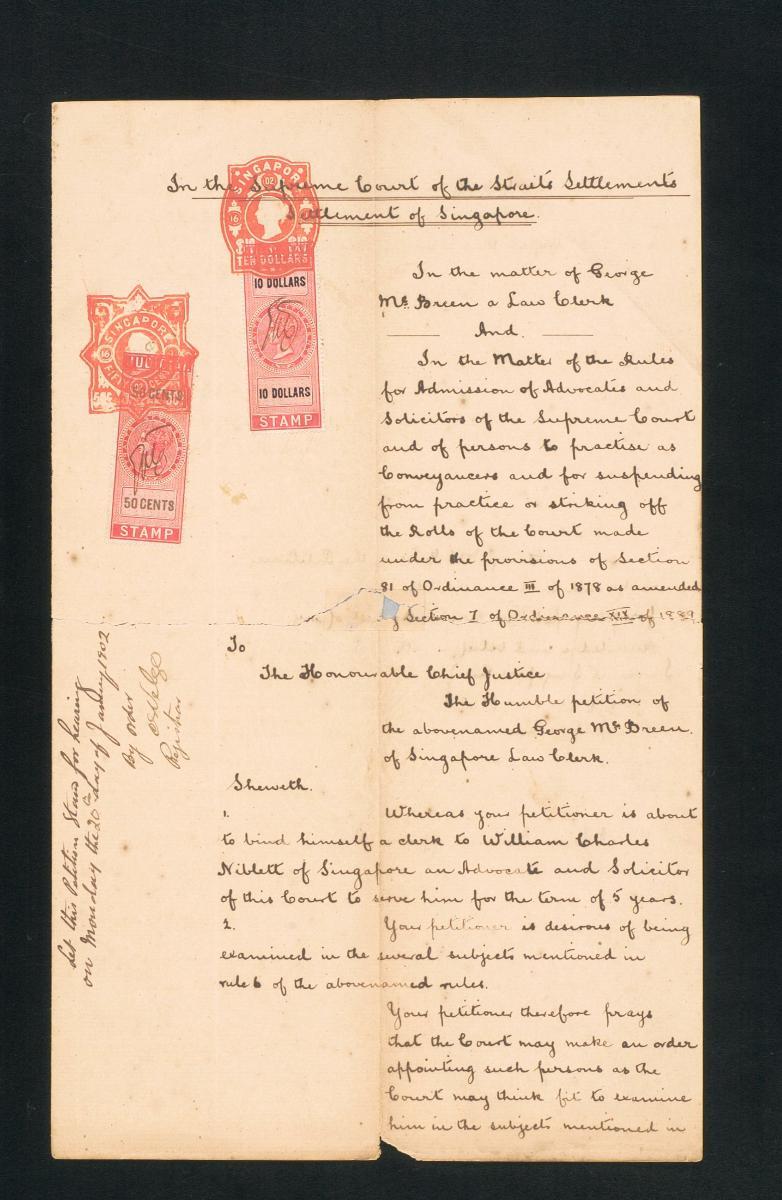 In the Supreme Court of the Straits Settlements
Settlement of Singapore.
SINGAPORE
02
16
TEN DOLLARS
10 DOLLARS
10 DOLLARS
STAMP
SINGAPORE
16
50 CENTS
50 CENTS
STAMP
In the matter of George
Mc Breen a Law Clerk
And
In the Matter of the Rules
for Admission of Advocates and
Solicitors of the Supreme Court
and of persons to practise as
Conveyancers and for suspending
from practice or striking off
the Rolls of the Court made
under the provisions of Section
81 of Ordinance III of 1878 as amended
Section I of Ordinance XIX of 1889
To
The Honourable Chief Justice
The Humble petition of
the abovenamed George Mc Breen.
of Singapore Law Clerk.
Sheweth.
1. Whereas your petitioner is about
to bind himself a clerk to William Charles
Niblett of Singapore an Advocate and Solicitor
of this Court to serve him for the term of 5 years.
2. Your petitioner is desirous of being
examined in the several subjects mentioned in
rule 6 of the abovenamed rules.
Your petitioner therefore prays
that the Court may make an order
appointing such persons as the
Court may think fit to examine
him in the subjects mentioned in
Let this Petition stand for hearing
on Monday the 20th day of January 1902
By order
Registrar